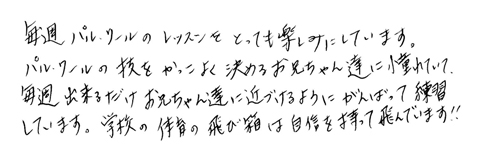 毎週 パル・クールの レッスンを とっても楽しみにしています。
パル・クールの 技を かっこよく決めるお兄ちゃん達に憧れていて、
毎週 出来るだけ お兄ちゃん達に近づけるように がんばって 練習
しています。学校の 体育の 飛び箱は自信を持って飛んでいます!!